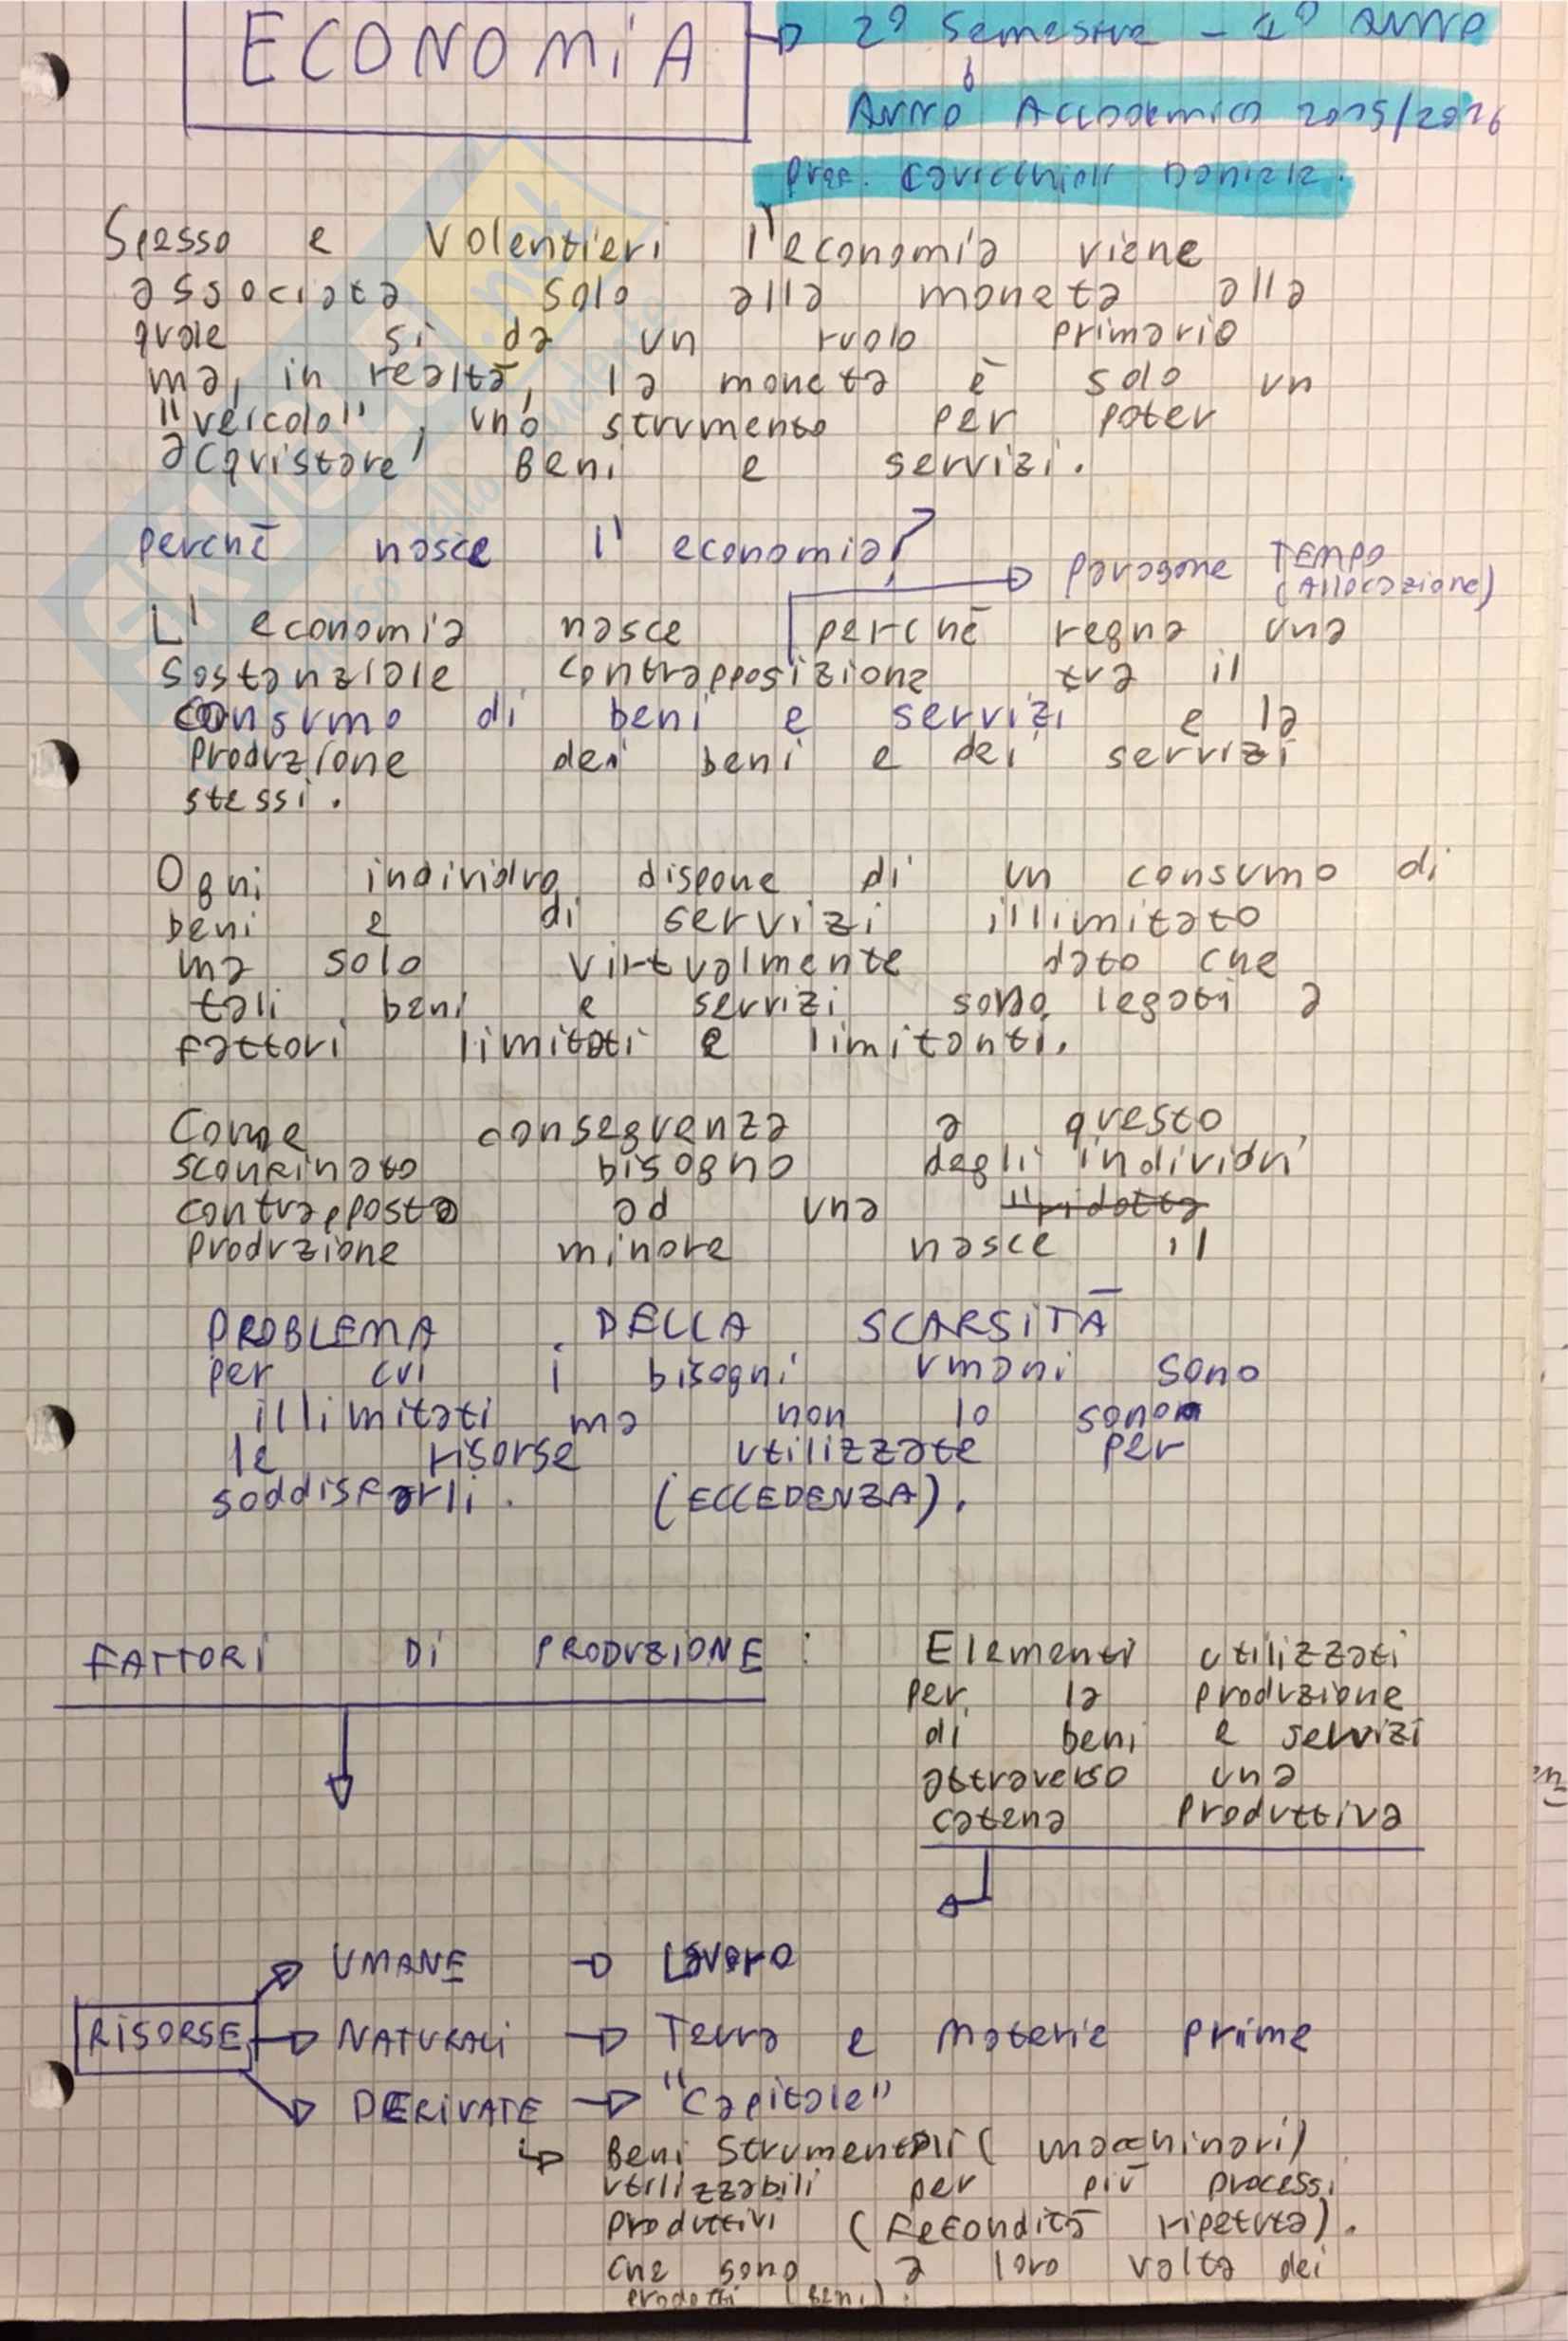 ECONOMIA → 2° Semestre - 1° Anno
Anno Accademico 2015/2016
Prof. Cavicchioli Daniele.
Spesso e volentieri l'economia viene
associata solo alla moneta alla
quale si da un ruolo primario
ma, in realtà, la moneta è solo un
"veicolo", uno strumento per poter
acquistare beni e servizi.
perchè nasce l'economia?
→ paragone TEMPO
(Allocazione)
L'economia nasce perchè regna una
sostanziale contrapposizione tra il
consumo di beni e servizi e la
produzione dei beni e dei servizi
stessi.
Ogni individuo dispone di un consumo di
beni e di servizi illimitato
ma solo virtualmente dato che
tali beni e servizi sono legati a
fattori limitati e limitanti.
Come conseguenza a questo
sconfinato bisogno degli individui
contrapposto ad una "ridotta
produzione minore nasce il
PROBLEMA DELLA SCARSITÀ
per cui i bisogni umani sono
illimitati ma non lo sono
le risorse utilizzate per
soddisfarli. (ECCEDENZA).
FATTORI DI PRODUZIONE : Elementi utilizzati
per la produzione
di beni e servizi
attraverso una
catena produttiva
UMANE → Lavoro
RISORSE → NATURALI → Terra e materie prime
DERIVATE → "Capitale"
↳ Beni Strumentali ( macchinari)
utilizzabili per più processi
produttivi (fecondità ripetuta).
che sono a loro volta dei
prodotti (beni).